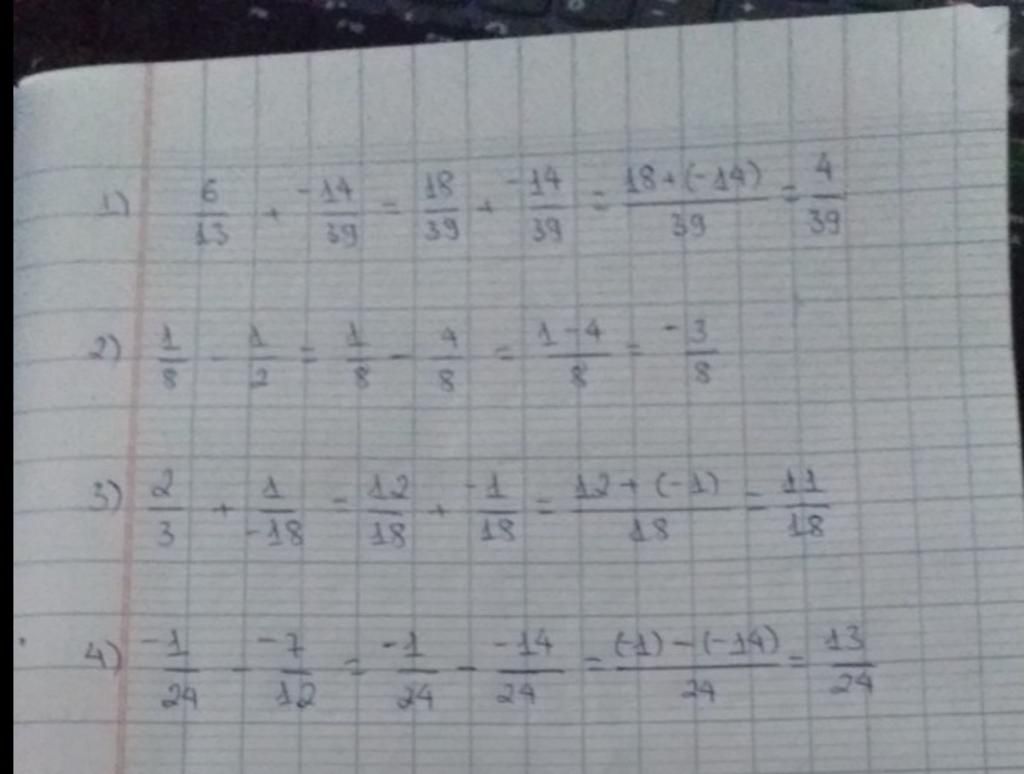 1) 6/13 + -14/39 = 18/39 + -14/39 = 18+(-14)/39 = 4/39
2) 1/8 - 1/2 = 1/8 - 4/8 = 1-4/8 = -3/8
3) 2/3 + 1/-18 = 12/18 + -1/18 = 12+(-1)/18 = 11/18
4) -1/24 - -7/12 = -1/24 - -14/24 = (-1)-(-14)/24 = 13/24